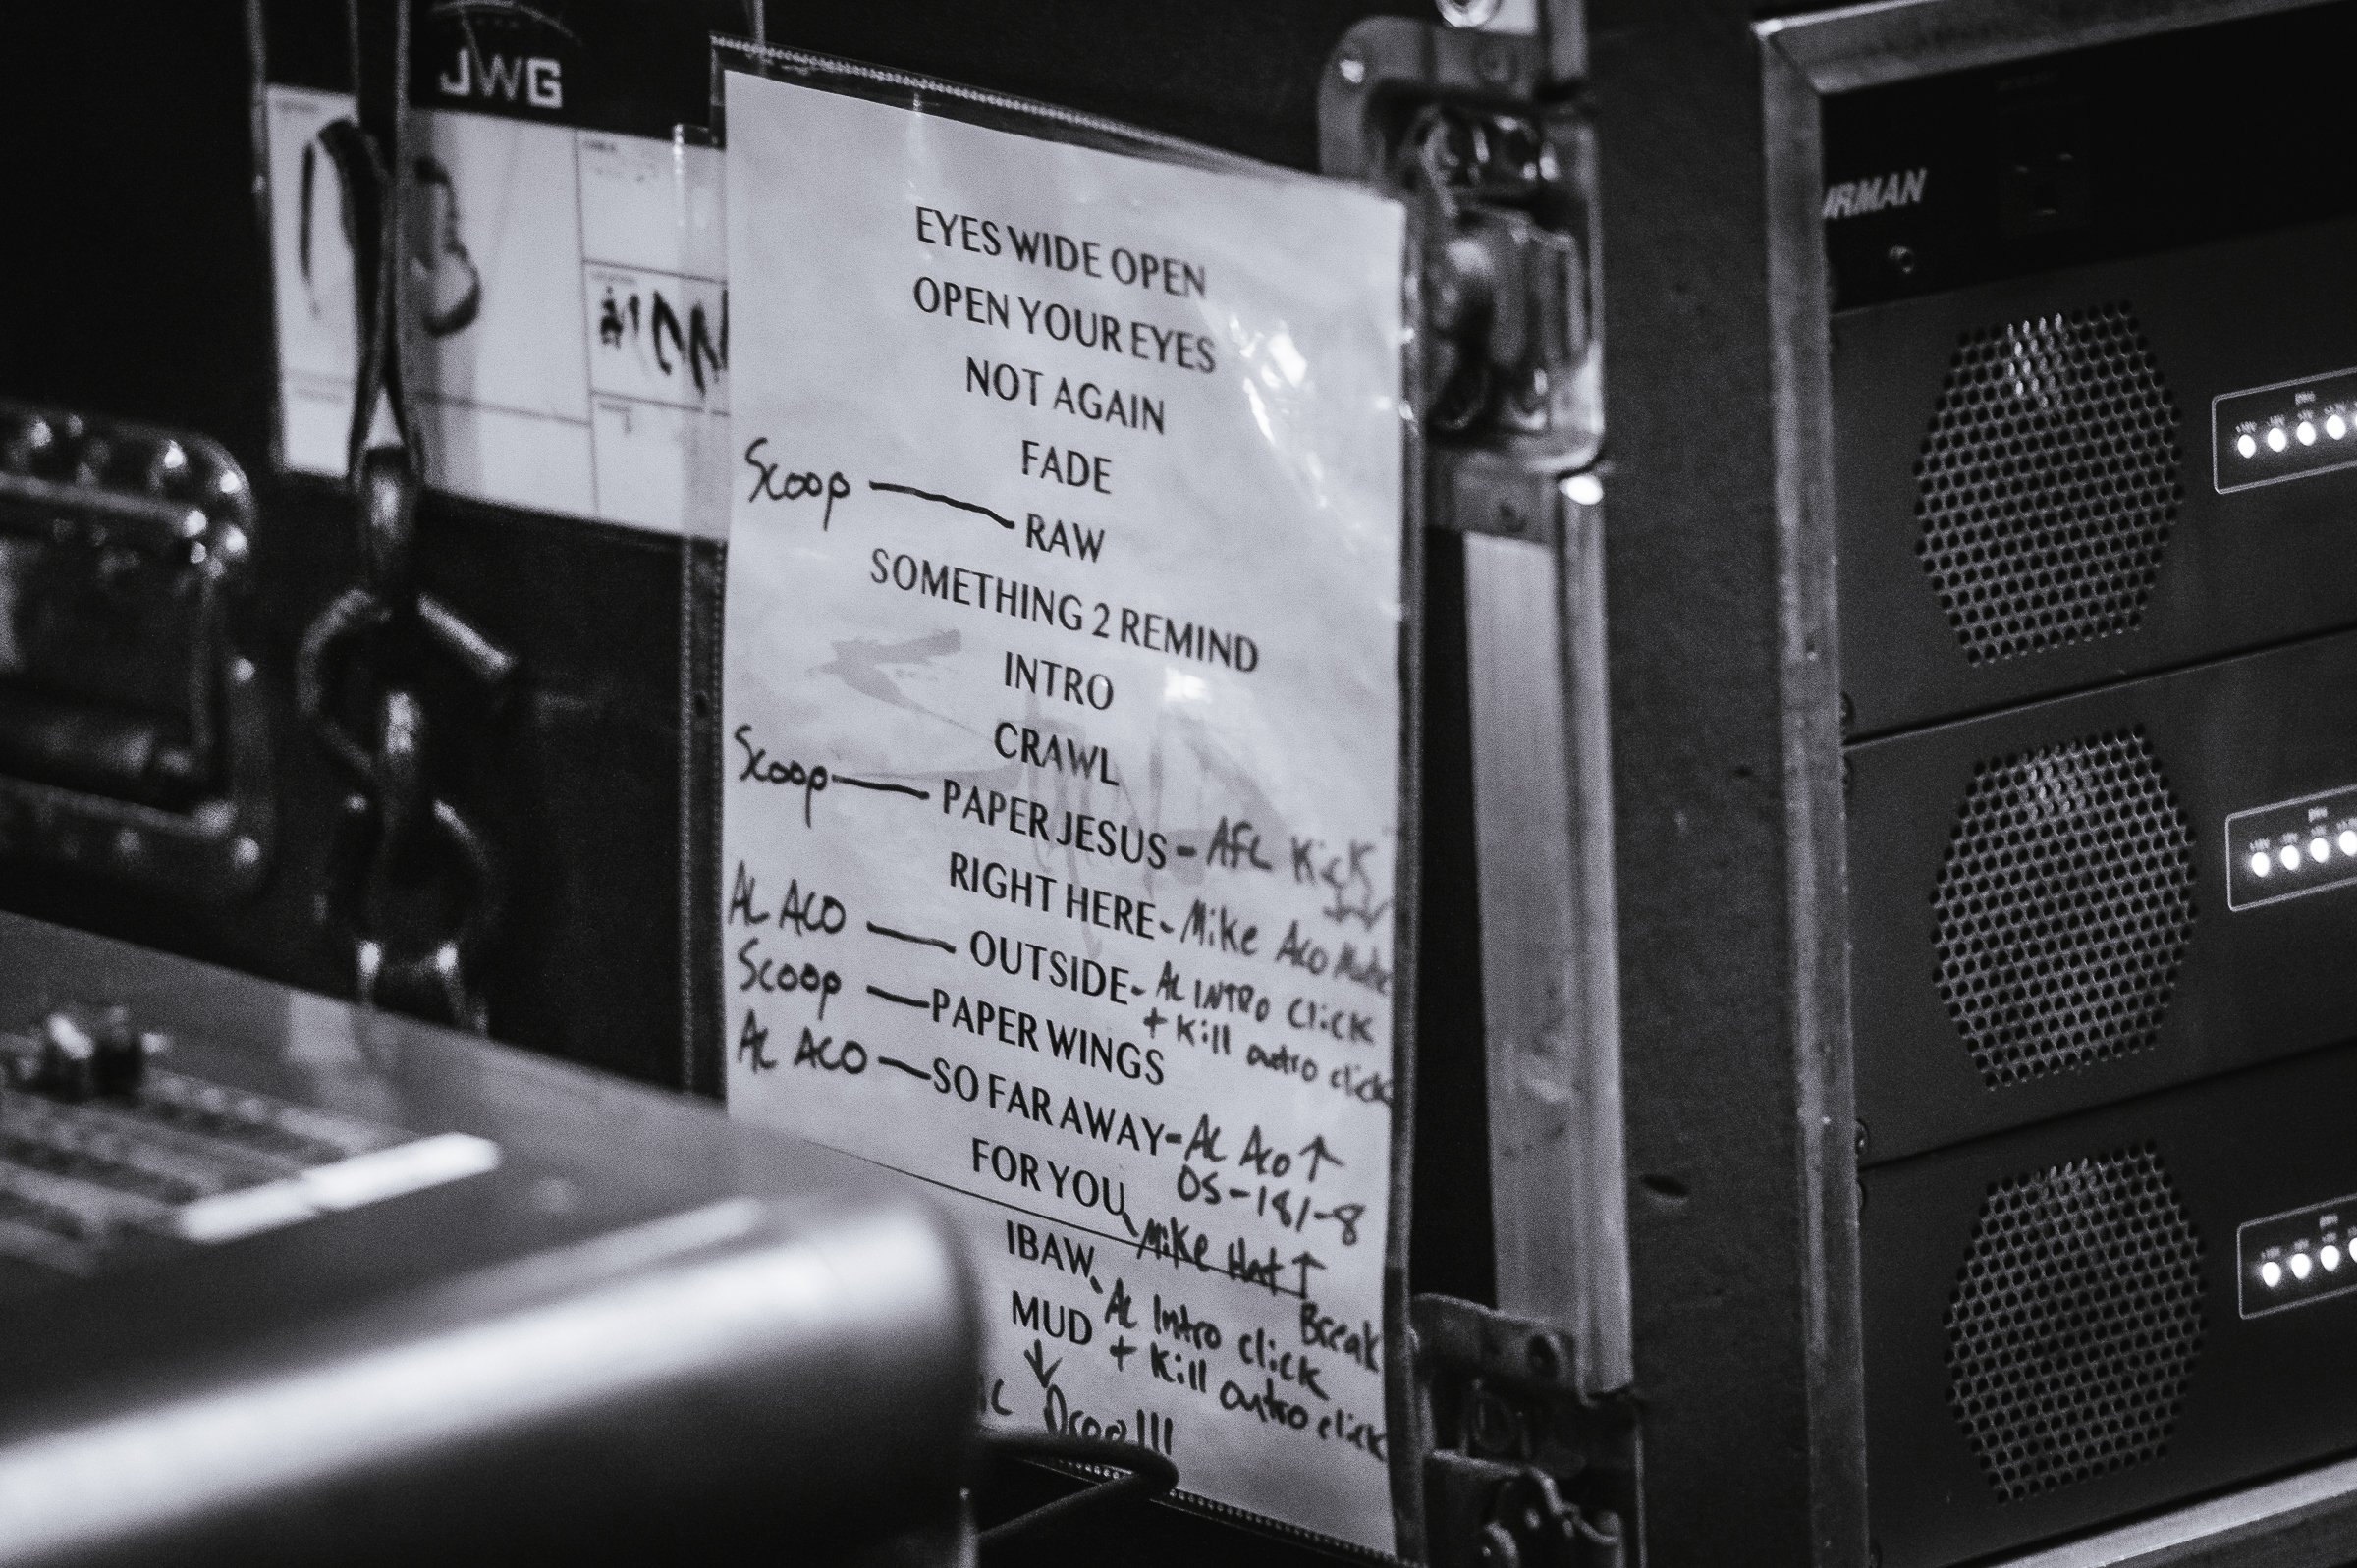 JWG
URMAN
EYES WIDE OPEN
OPEN YOUR EYES
NOT AGAIN
FADE
Scoop — RAW
SOMETHING 2 REMIND
INTRO
CRAWL
Scoop — PAPER JESUS - AFL Kick
RIGHT HERE - Mike Aco Mute
AL ACO — OUTSIDE - AL INTRO Click
+ Kill outro click
Scoop — PAPER WINGS
AL ACO — SO FAR AWAY - AL Aco ↑
FOR YOU - Mike Hat ↑
Break
IBAW - AL Intro click
+ Kill outro click
MUD
↓
Drop!!!